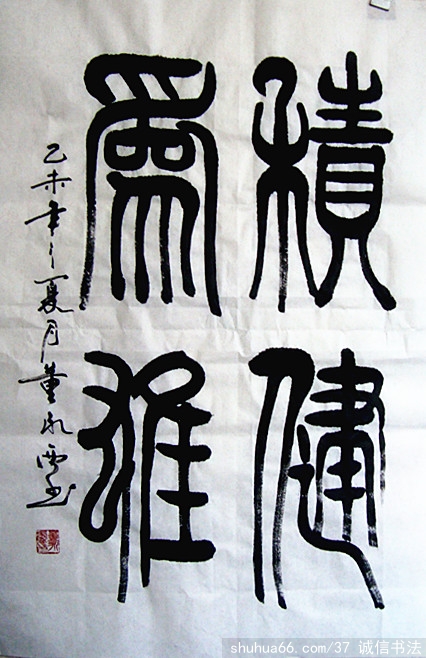 積健
為雄
乙未年之夏月董永雲書
shuhua66.com/37 诚信书法